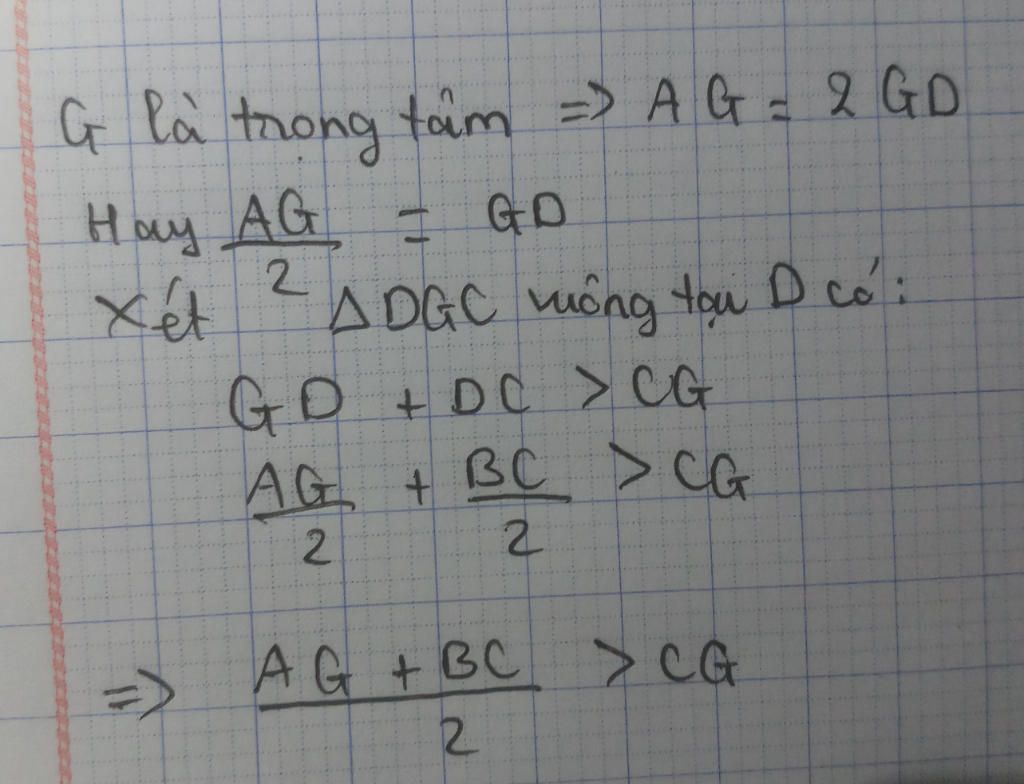 G là trọng tâm => AG = 2 GD
Hay AG/2 = GD
Xét ΔDGC vuông tại D có:
GD + DC > CG
AG/2 + BC/2 > CG
=> (AG + BC)/2 > CG